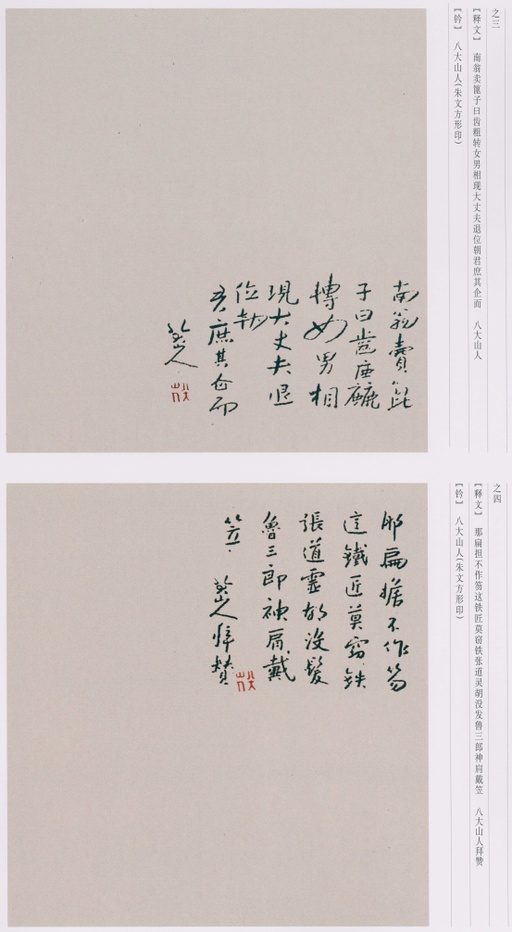 之三
【释文】 南翁卖篦子曰齿粗转女男相现大丈夫退位朝君庶其企而 八大山人
【钤】 八大山人(朱文方形印)
南翁賣篦
子曰齒麤
轉女男相
現大丈夫退
位朝
君庶其企而
八大山人
之四
【释文】 那扁担不作笏这铁匠莫窃铁张道灵胡没发鲁三郎神肩戴笠 八大山人拜赞
【钤】 八大山人(朱文方形印)
那扁担不作笏
這鐵匠莫竊鉄
張道靈胡沒髮
魯三郎神肩戴
笠 八大山人拜贊